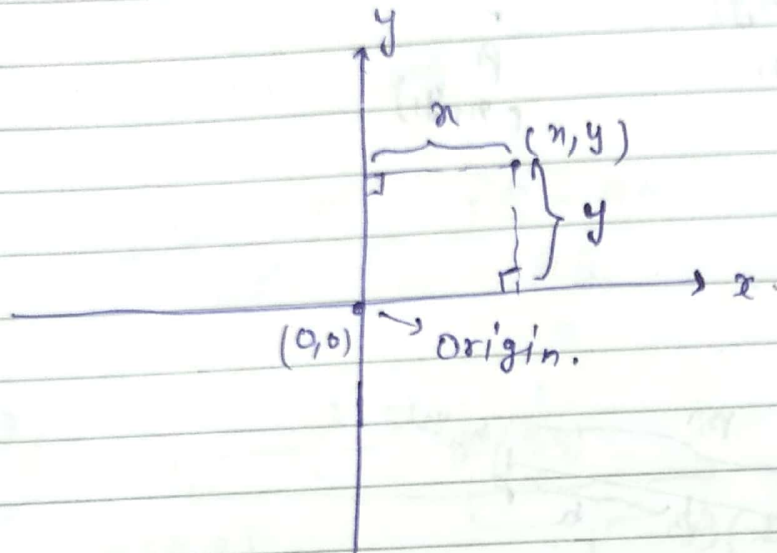 y
x
(x, y)
y
x
(0,0)
Origin.